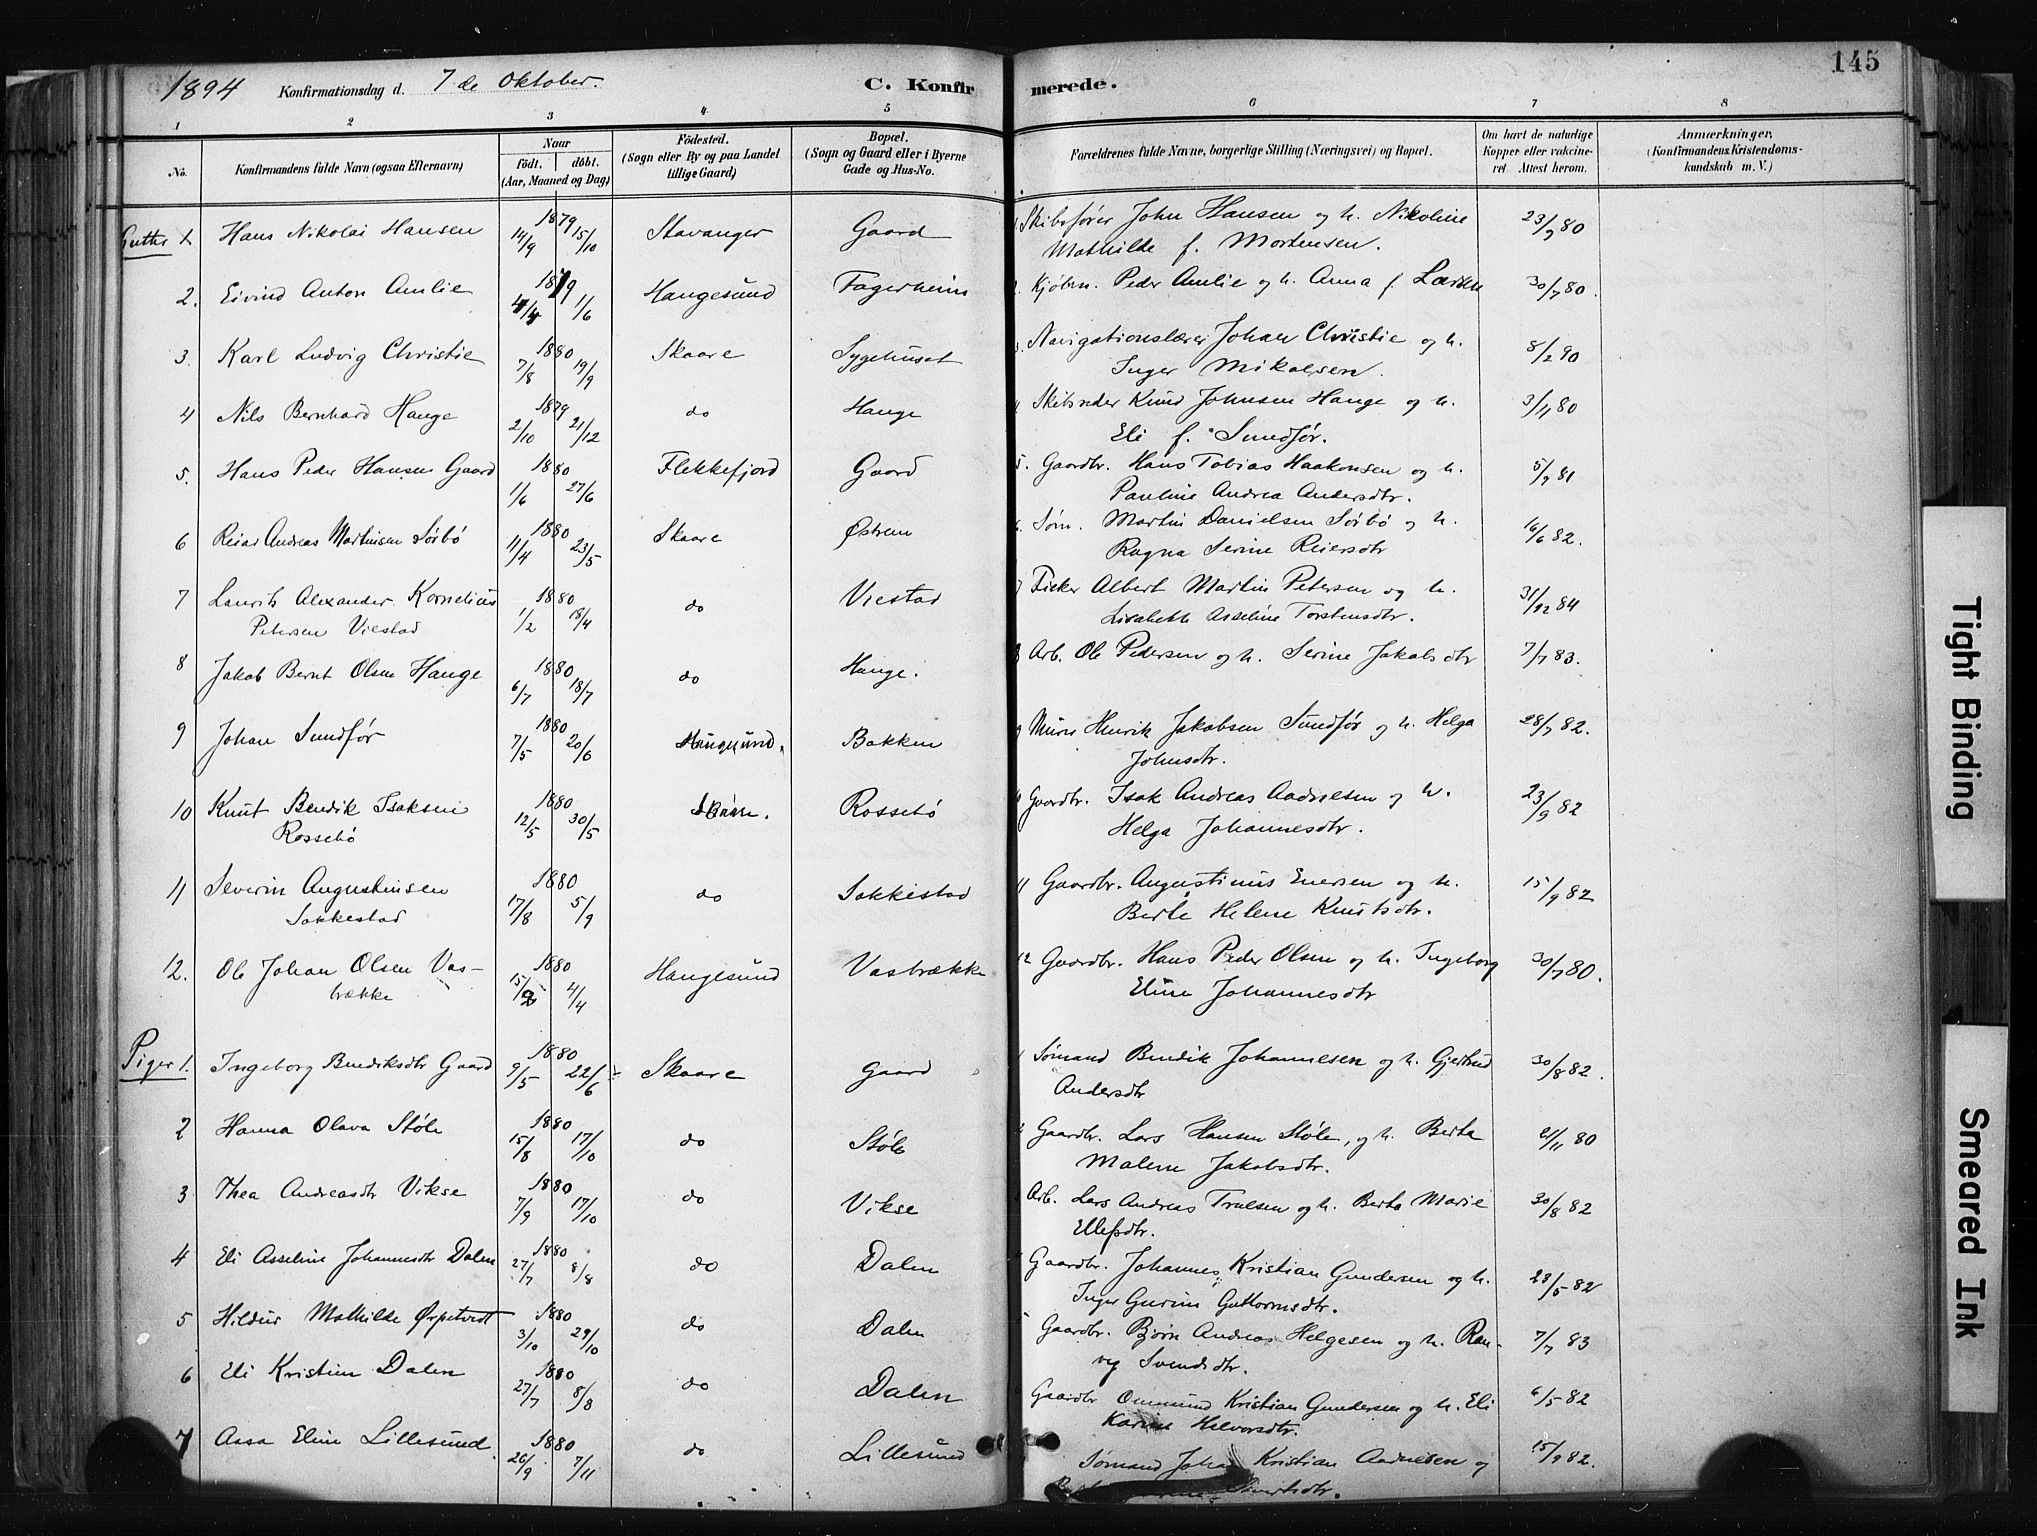 145
1894 Konfirmationsdag d. 7de Oktober. C. Konfirmerede.
1 2 3 4 5 6 7 8
No. Konfirmandens fulde Navn (ogsaa Efternavn) Naar födt. döbt. (Aar, Maaned og Dag) Födested. (Sogn eller By og paa Landet tillige Gaard) Bopæl. (Sogn og Gaard eller i Byerne Gade og Hus-No. Forældrenes fulde Navne, borgerlige Stilling (Næringsvei) og Bopæl. Om havt de naturlige Kopper eller vakcineret. Attest herom. Anmærkninger, (Konfirmandens Kristendomskundskab m. V.)
Gutter 1. Hans Nikolai Hansen 1879 14/9 15/10 Stavanger Gaard 1. Skibsfører John Hansen og h. Nikoline 23/9 80
Mathilde f. Mortensen.
2. Eivind Anton Amlie 1879 4/4 1/6 Haugesund Fagerheim 2. Kjøbm. Peder Amlie og h. Anna f. Larsen 30/7 80.
3. Karl Ludvig Christie 1880 7/8 19/9 Skaare Sygehuset 3. Navigationslærer Johan Christie og h. 8/2 90
Inger Mikalsen.
4 Nils Bernhard Hauge 1879 2/10 21/12 do Hauge 4 Skibsreder Knud Johnsen Hauge og h. 3/11 80
Eli f. Sundfør.
5. Hans Peder Hansen Gaard 1880 1/6 27/6 Flekkefjord Gaard 5. Gaardbr. Hans Tobias Haakonsen og h. 5/9 81
Pauline Andrea Andersdtr.
6 Reiar Andreas Martinsen Sørbø 1880 11/4 23/5 Skaare Østrem 6. Søm. Martin Danielsen Sørbø og h. 16/6 82.
Ragna Serine Reiersdtr
7 Laurits Alexander Kornelius 1880 1/2 18/4 do Viestad 7 Fisker Albert Martin Petersen og h. 31/12 84
Petersen Viestad Lisabeth Asseline Torstensdtr.
8 Jakob Bernt Olsen Hauge 1880 6/7 18/7 do Hauge. 8 Arb. Ole Pedersen og h. Serine Jakobsdtr 7/7 83.
9 Johan Sundfør 1880 7/5 20/6 Haugesund. Bakken 9 Murer Henrik Jakobsen Sundfør og h. Helga 28/7 82.
Johnsdtr.
10 Knut Bendik Isaksen 1880 12/5 30/5 Skaare. Rossebø 10 Gaardbr. Isak Andreas Aadnesen og h. 23/9 82
Rossebø Helga Johannesdtr.
11 Severin Augustinsen 1880 17/8 5/9 do Sakkestad 11 Gaardbr. Augustinus Enersen og h. 15/9 82
Sakkestad Berte Helene Knutsdtr.
12. Ole Johan Olsen Vas- 1880 15/2 4/4 Haugesund Vasbrække 12 Gaardbr. Hans Peder Olsen og h. Ingeborg 30/7 80.
brække Eline Johannesdtr
Piger 1. Ingeborg Bendiksdtr Gaard 1880 9/5 22/6 Skaare Gaard 1 Sømand Bendik Johannesen og h. Gjertrud 30/8 82.
Andersdtr
2 Hanna Olava Støle 1880 15/8 17/10 do Støle 2 Gaardbr. Lars Hansen Støle, og h. Berta 21/11 80
Malene Jakobsdtr.
3 Thea Andreasdtr Vikse 1880 7/9 17/10 do Vikse 3 Arb. Lars Andreas Truelsen og h. Berta Marie 30/8 82
Ellefsdtr.
4 Eli Asseline Johannesdtr Dalen 1880 27/7 8/8 do Dalen 4 Gaardbr. Johannes Kristian Gundersen og h. 28/5 82
Inger Gurine Guttormsdtr.
5 Hildur Mathilde Ørpetvedt 1880 3/10 29/10 do Dalen 5 Gaardbr. Bjørn Andreas Helgesen og h. Ran- 7/7 83
veg Svendsdtr.
6 Eli Kristine Dalen 1880 27/7 8/8 do Dalen 6 Gaardbr Ommund Kristian Gundersen og h. Eli 6/5 82
Karine Helvorsdtr.
7 Assa Eline Lillesund 1880 26/9 7/11 do Lillesund Sømand Johan Kristian Aadnesen og 15/9 82.
Sivertsdtr.
Tight Binding
Smeared Ink